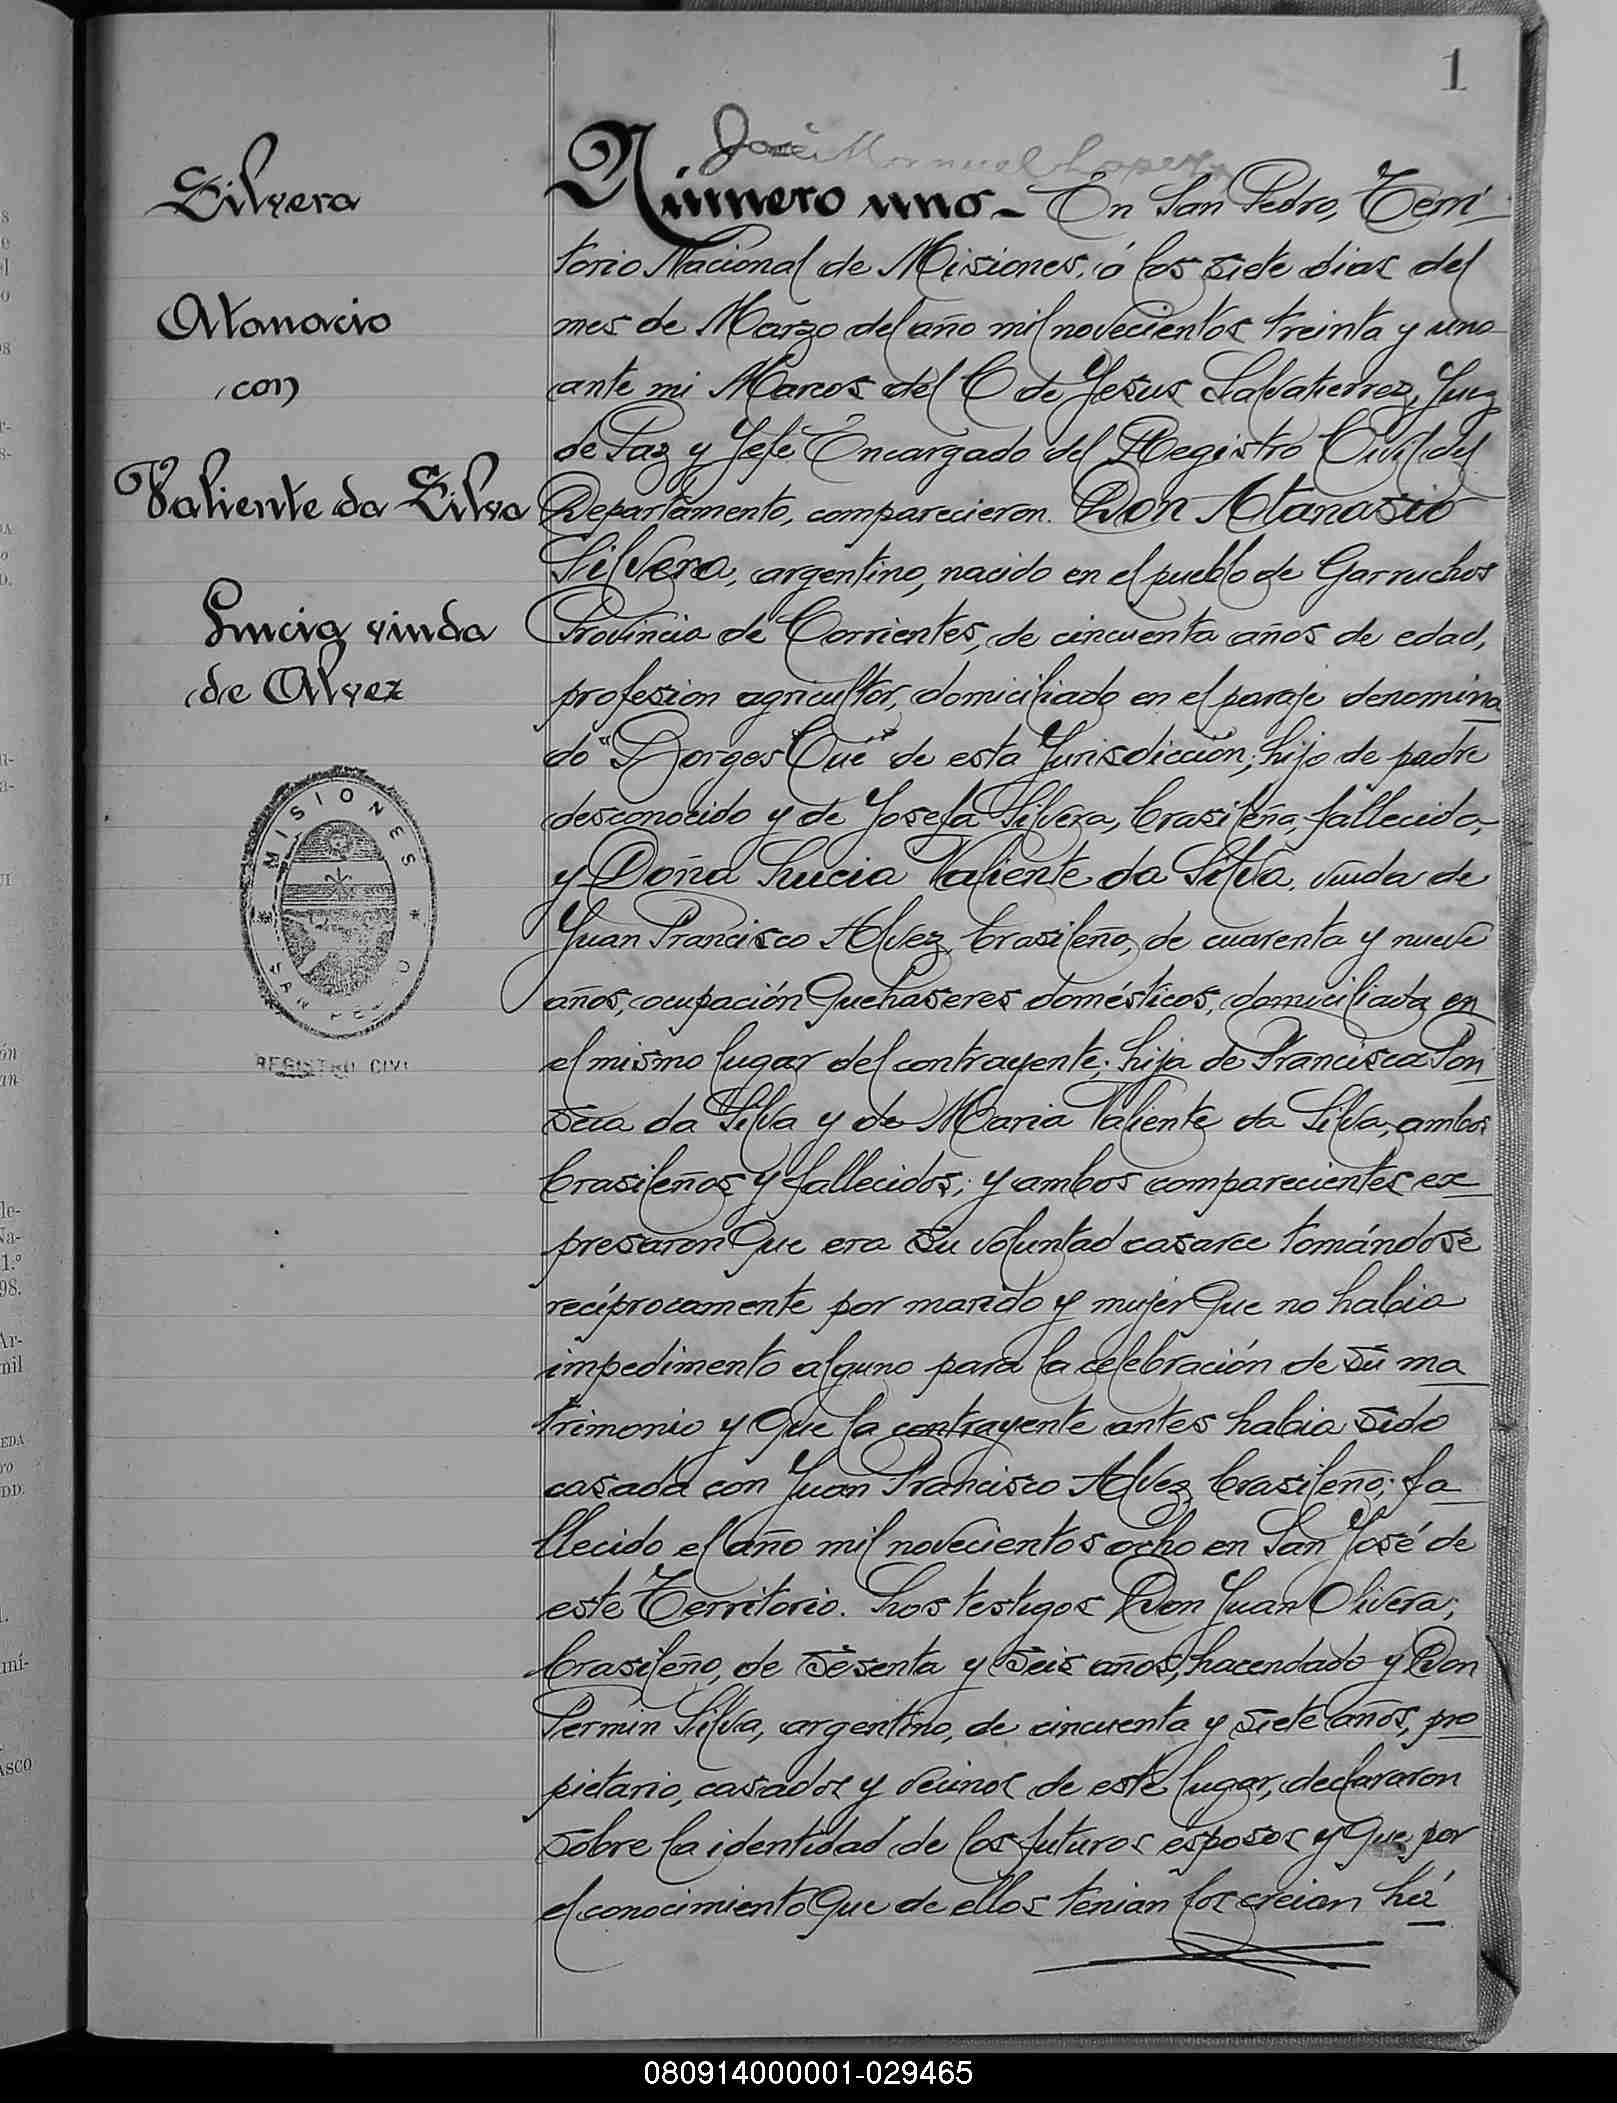 1
José Manuel Lopez
Silvera
Atanacio
con
Valiente da Silva
Lucia viuda
de Alvez
MISIONES
SAN PEDRO
REGISTRO CIVI
Número uno - En San Pedro, Terri
torio Nacional de Misiones, á los siete dias del
mes de Marzo del año mil novecientos treinta y uno
ante mi Marcos del C de Jesus Salvatierrez, Juez
de Paz y Jefe Encargado del Registro Civil del
Departamento, comparecieron. Don Atanasio
Silvera, argentino, nacido en el pueblo de Garruchos
Provincia de Corrientes, de cincuenta años de edad,
profesion agricultor, domiciliado en el paraje denomina
do "Borges Cué" de esta Jurisdicción; hijo de padre
desconocido y de Josefa Silvera, brasileña, fallecida,
y Doña Lucia Valiente da Silva, viuda de
Juan Francisco Alvez, brasileño, de cuarenta y nueve
años, ocupación quehaseres domésticos, domiciliada en
el mismo lugar del contrayente; hija de Francisca Pon
seca da Silva y de Maria Valiente da Silva, ambos
brasileños y fallecidos; y ambos comparecientes ex
presaron que era su voluntad casarce tomándose
recíprocamente por marido y mujer que no habia
impedimento alguno para la celebración de su ma
trimonio y que la contrayente antes habia sido
casada con Juan Francisco Alvez, brasileño; fa
llecido el año mil novecientos ocho en San José de
este Territorio. Los testigos Don Juan Olivera,
brasileño, de sesenta y seis años, hacendado y Don
Fermin Silva, argentino, de cincuenta y siete años, pro
pietario, casados y vecinos de este lugar, declararon
sobre la identidad de los futuros esposos y que por
el conocimiento que de ellos tenian los creian há
080914000001-029465